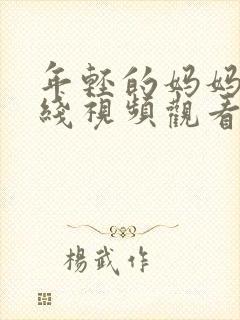 年輕的妈妈
綫視頻觀看
楊武作